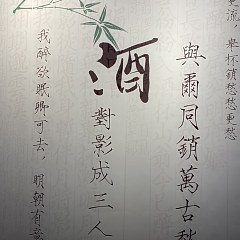 更流,舉杯銷愁愁更愁
與爾同銷萬古愁
酒
對影成三人
我醉欲眠卿可去,明朝有意